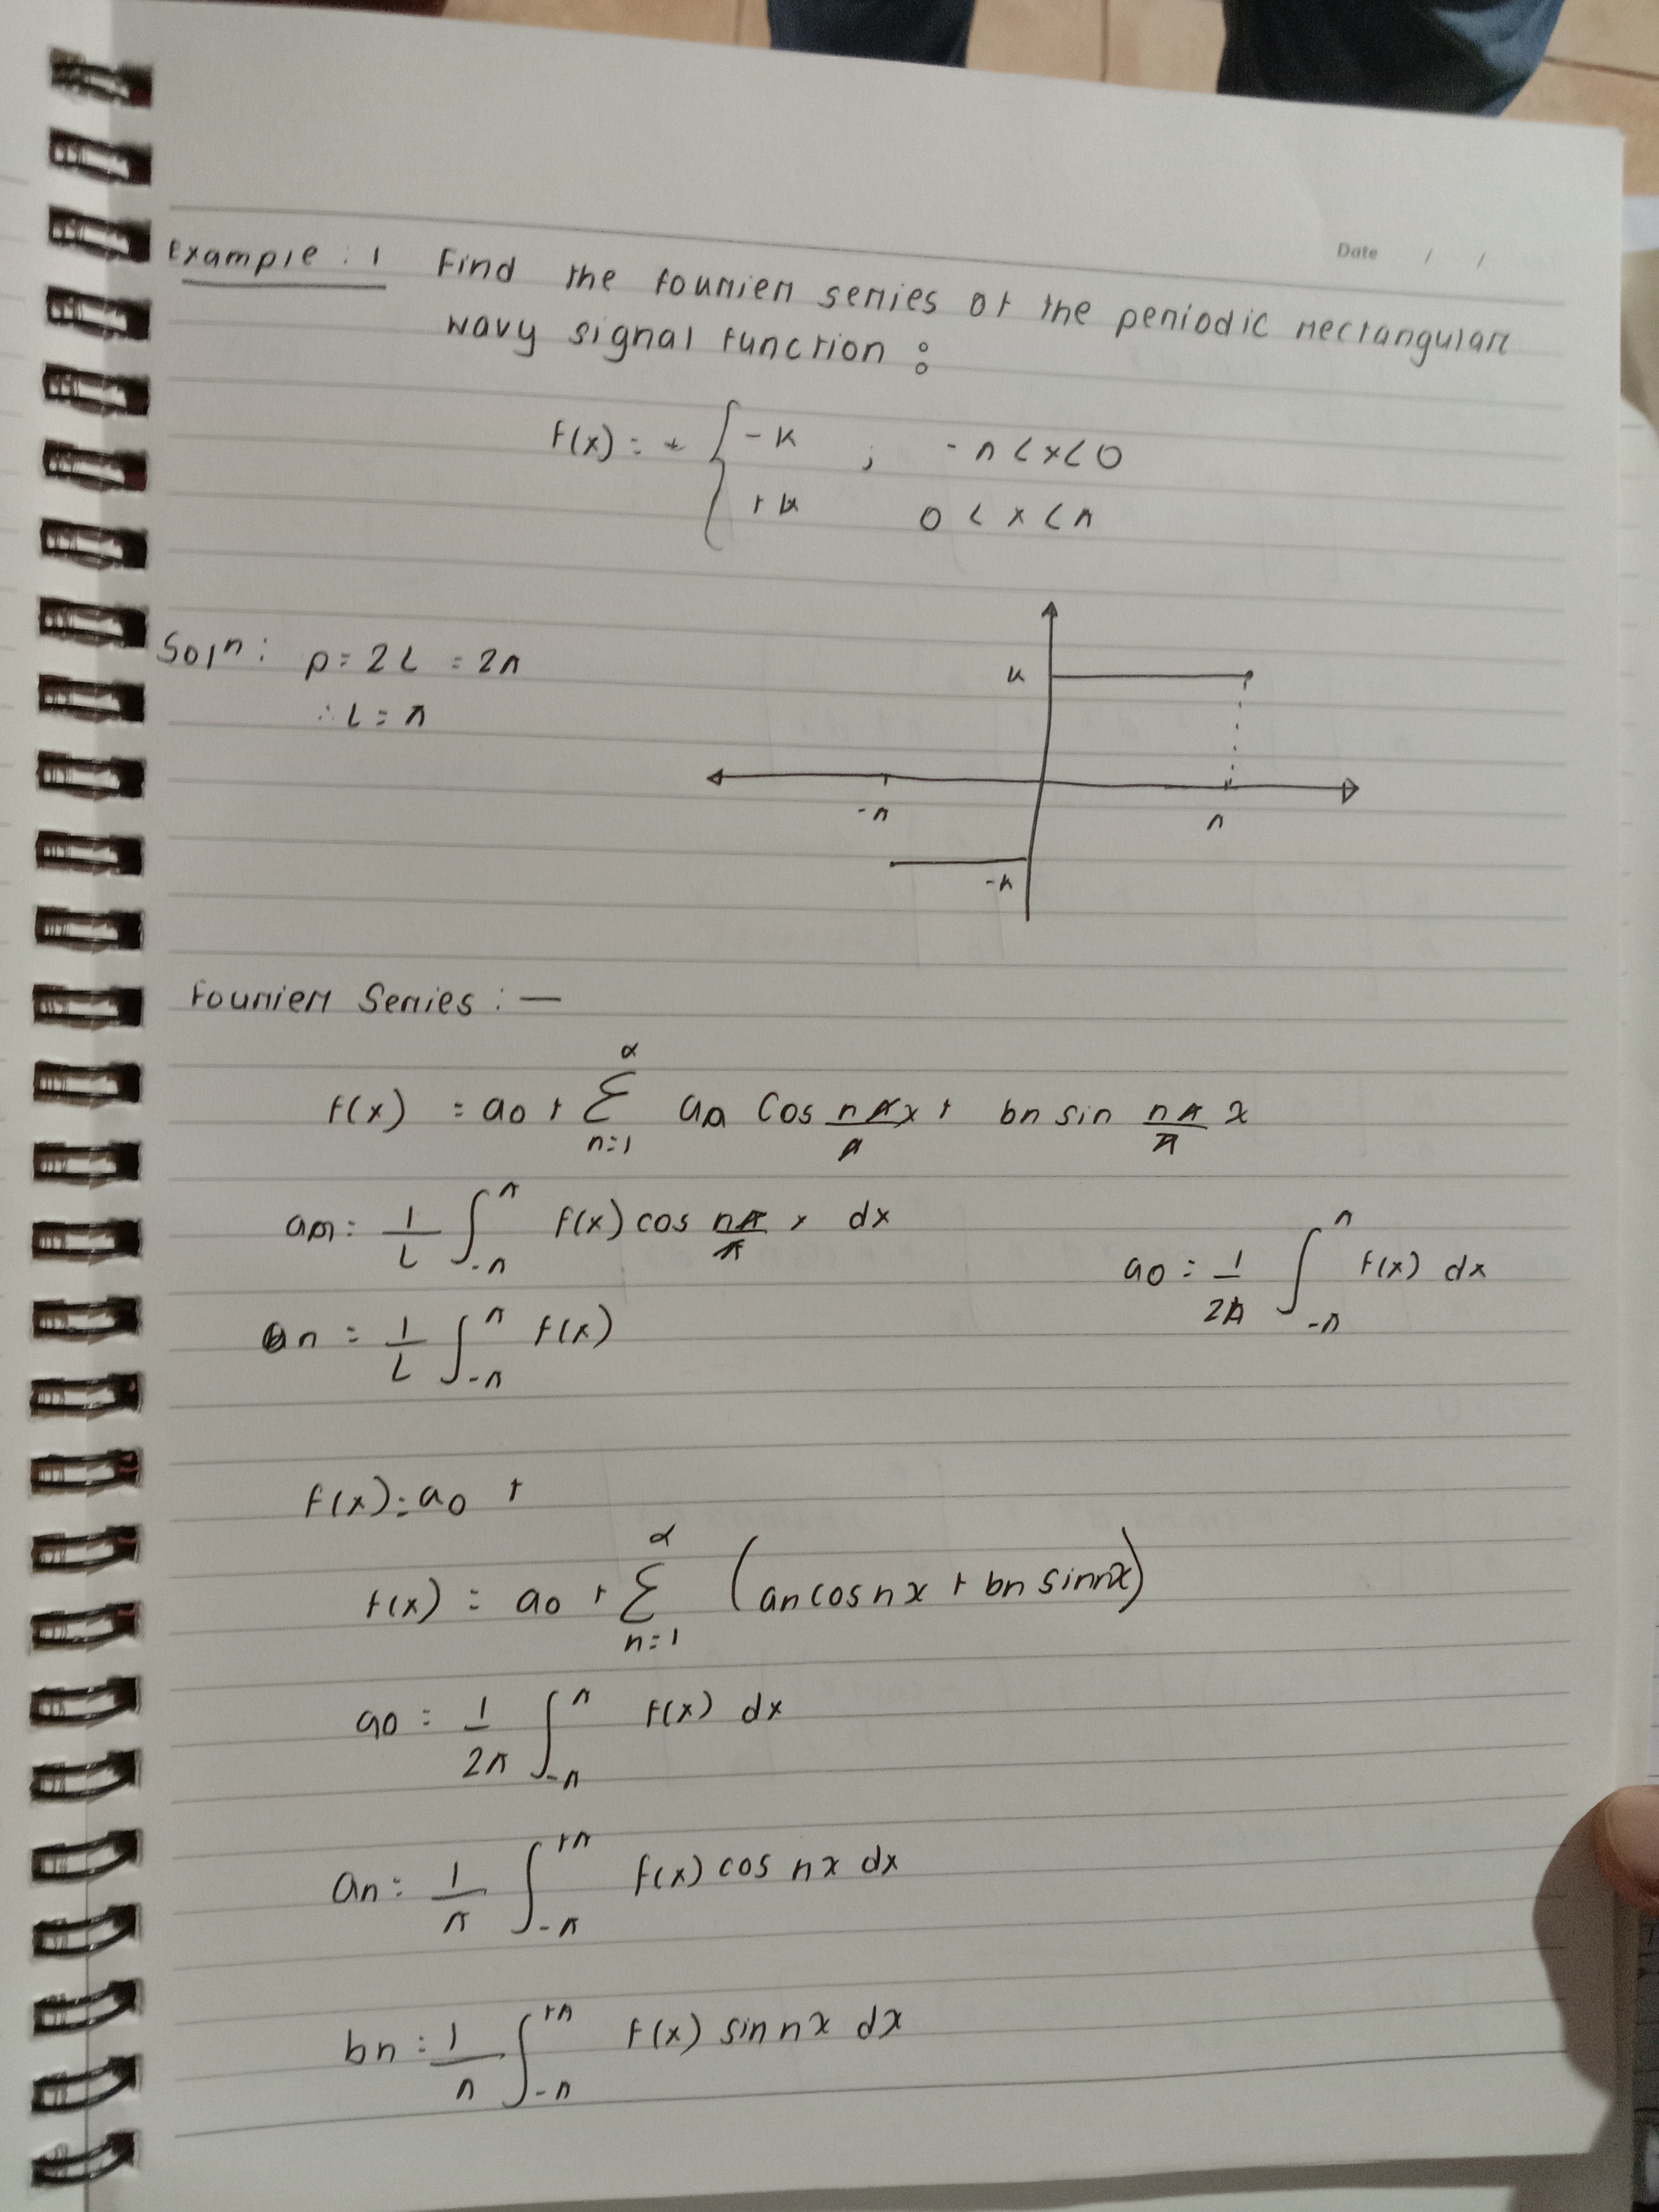 Date / /
Example : 1 Find the fourier series of the periodic rectangular
wavy signal function :
f(x) = + { -k ; -π < x < 0
+k 0 < x < π
Solⁿ : p = 2L = 2π
∴ L = π
k
-π π
-k
Fourier Series : —
f(x) = a0 + Σ_{n=1}^{α} an cos nπ/π x + bn sin nπ/π x
an = 1/L ∫_{-π}^{π} f(x) cos nπ/π x dx
a0 = 1/2π ∫_{-π}^{π} f(x) dx
bn = 1/L ∫_{-π}^{π} f(x)
f(x) = a0 +
f(x) = a0 + Σ_{n=1}^{α} (an cos nx + bn sin nx)
a0 = 1/2π ∫_{-π}^{π} f(x) dx
an = 1/π ∫_{-π}^{+π} f(x) cos nx dx
bn = 1/π ∫_{-π}^{+π} f(x) sin nx dx